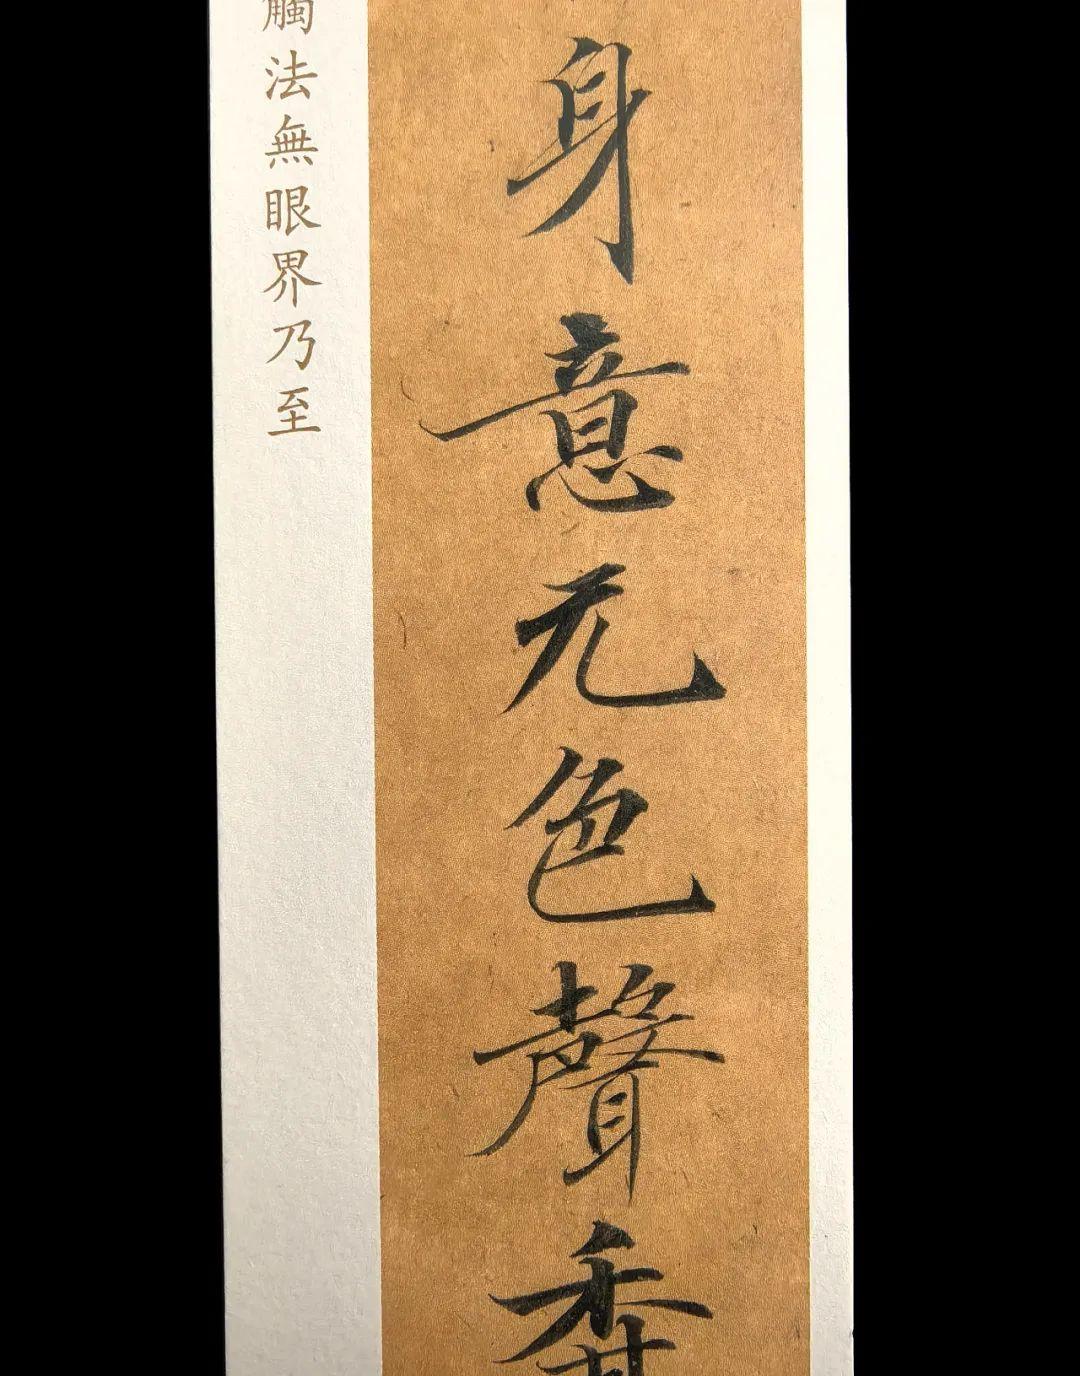 身意无色聲香
觸法無眼界乃至